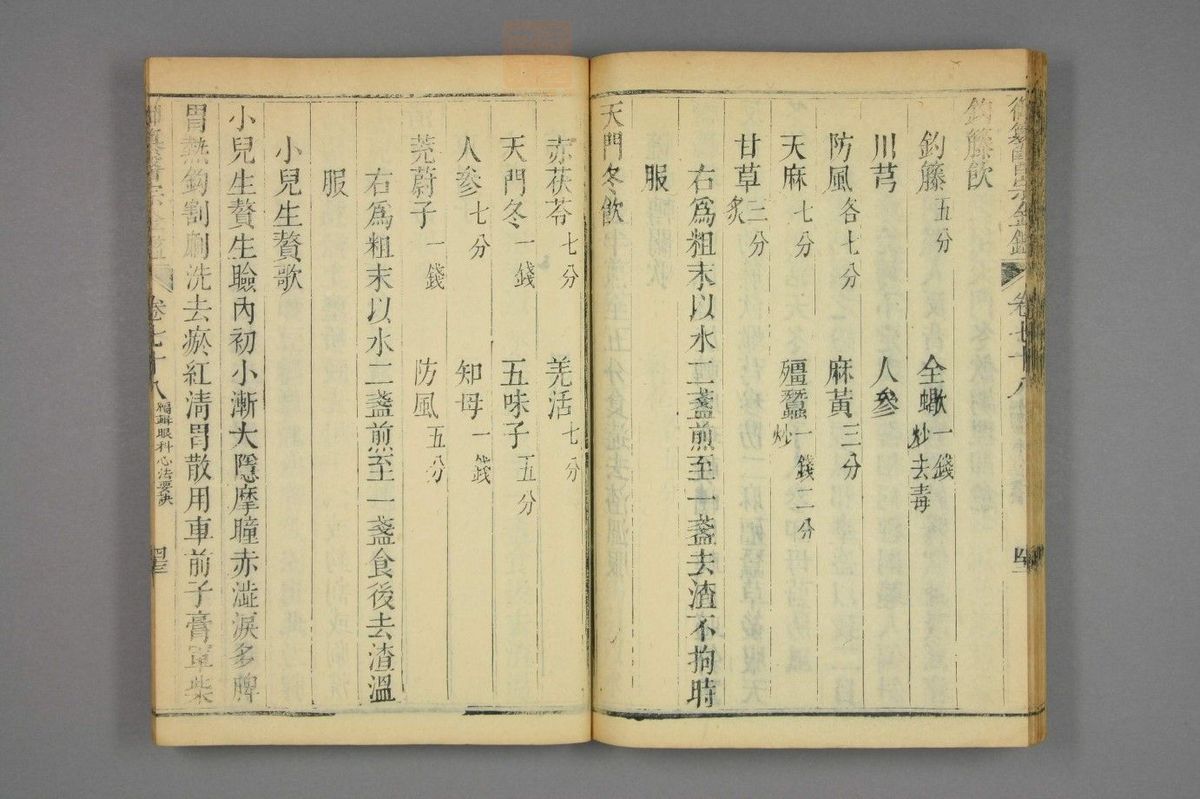 御纂醫宗金鑑 卷七十八 四三
鈎籐飲
鈎籐五分 全蠍一錢炒去毒
川芎 人參
防風各七分 麻黃三分
天麻七分 殭蠶一錢二分炒
甘草三分炙
右爲粗末以水二盞煎至一盞去渣不拘時
服
天門冬飲
赤茯苓七分 羌活七分
天門冬一錢 五味子五分
人參七分 知母一錢
茺蔚子一錢 防風五分
右爲粗末以水二盞煎至一盞食後去渣溫
服
小兒生贅歌
小兒生贅生瞼內初小漸大隱摩瞳赤澁淚多脾
胃熱鈎割劆洗去瘀紅淸胃散用車前子膏

卷七十八 編輯眼科心法要訣 四三